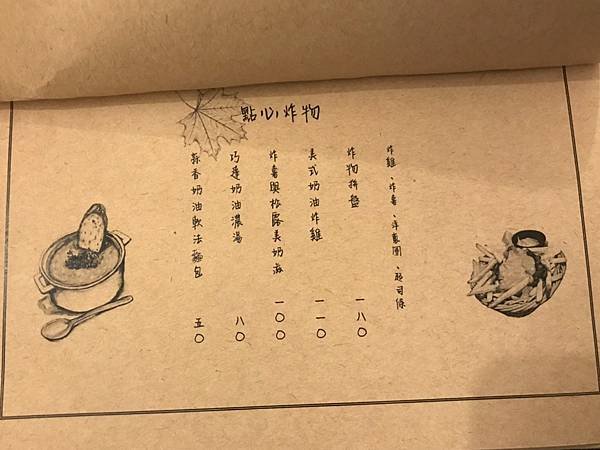 點心炸物
炸雞、炸薯、洋蔥圈、起司條
炸物拼盤 一八〇
美式奶油炸雞 一一〇
炸薯與松露美奶滋 一〇〇
巧達奶油濃湯 八〇
蒜香奶油軟法麵包 五〇